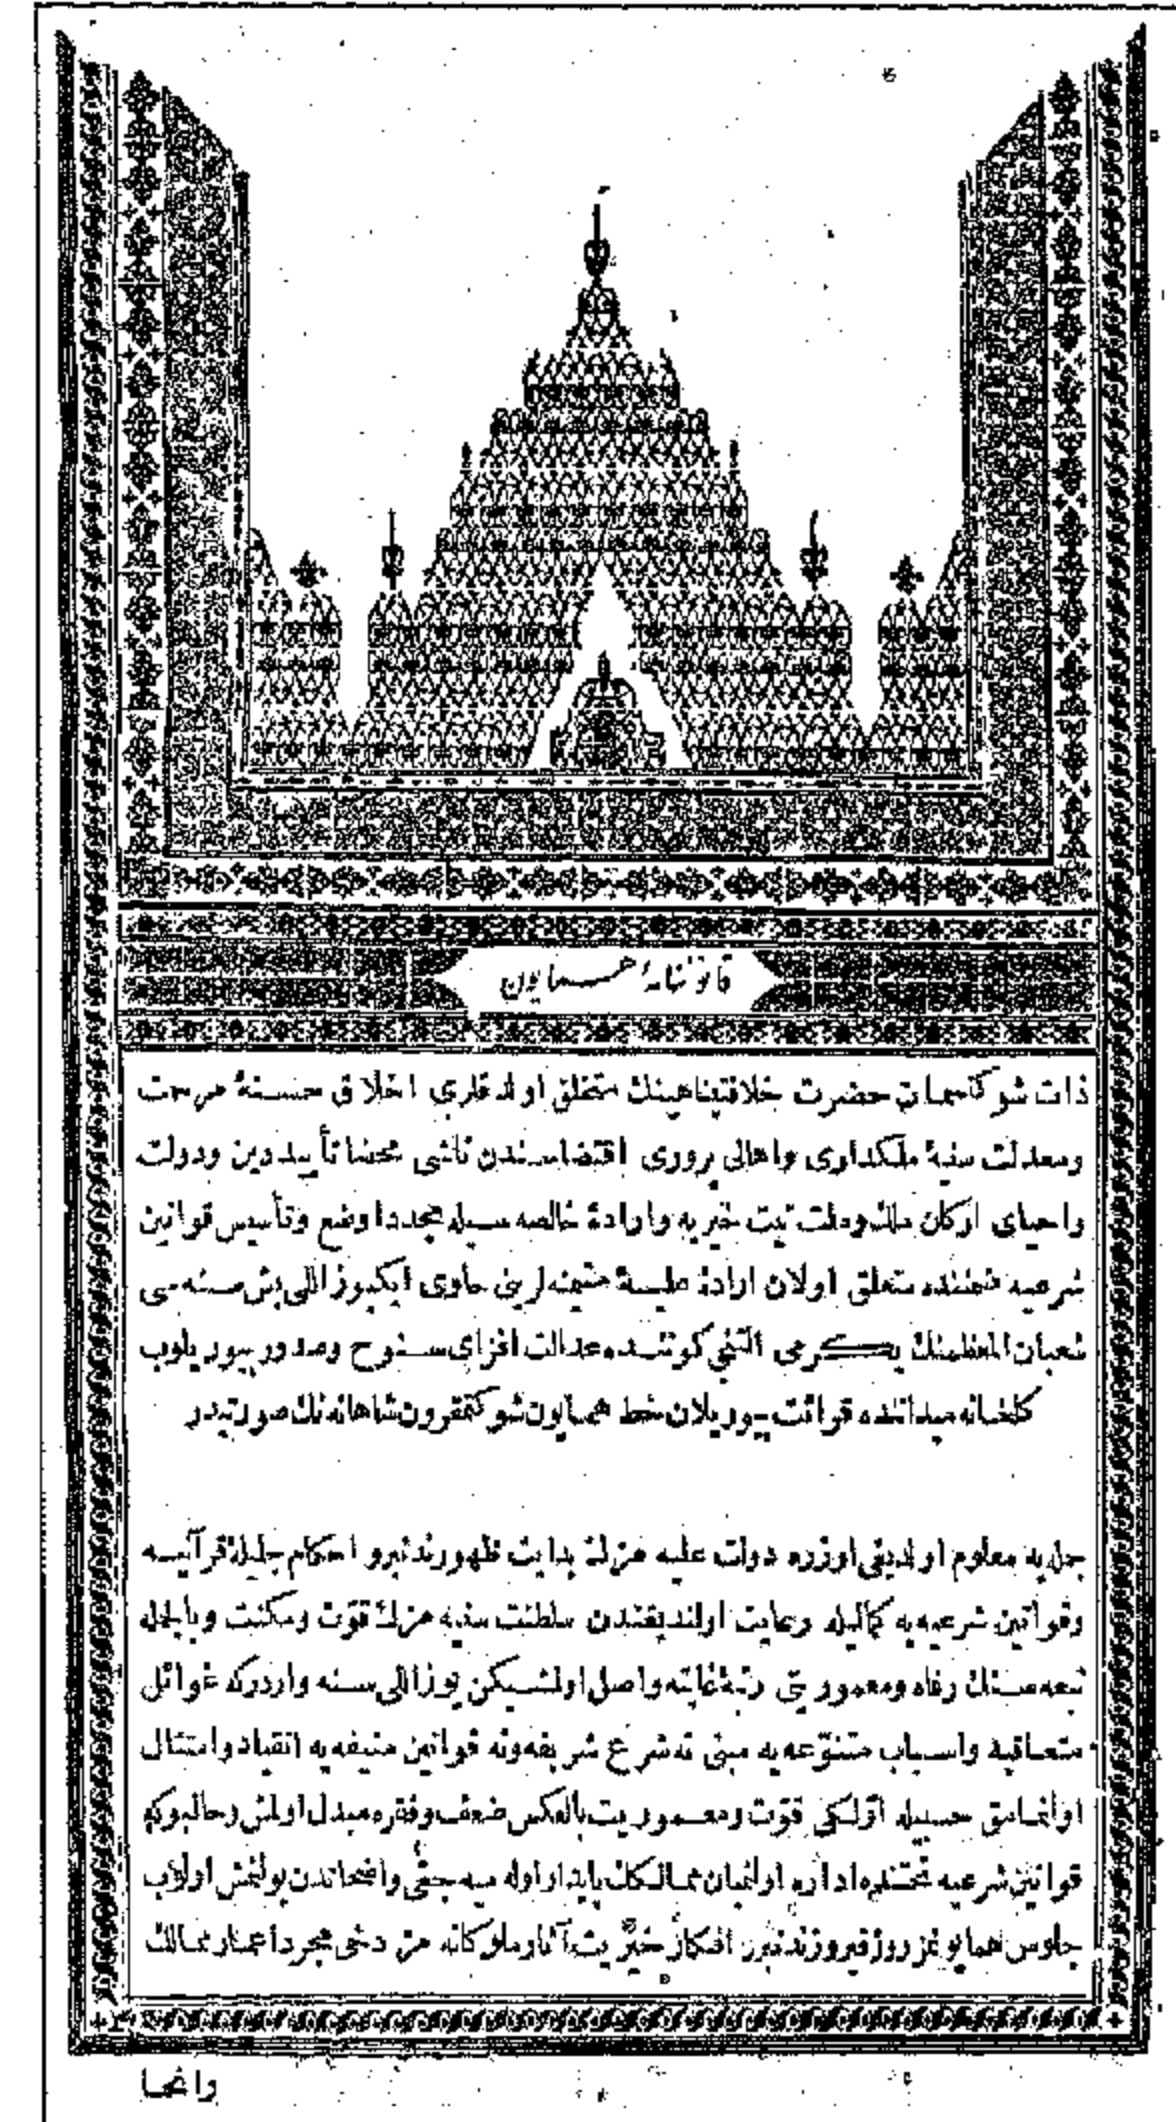 قانوننامهٔ همایون
ذات شوکتسمات حضرت خلافتپناهینك متخلق اولدقلری اخلاق حسنهٔ مرحمت
ومعدلت سنیهٔ ملکداری واهالی پروری اقتضاسندن ناشی محضا تأیید دین ودولت
واحیای ارکان ملك وملت نیت خیریه وارادهٔ خالصه سیله مجددا وضع وتأسیس قوانین
شرعیه ضمننده متعلق اولان ارادهٔ علیهٔ متیمنه لرینی حاوی ایکیوز اللی بش سنه سی
شعبان المعظمنك یکرمی التنجی کوننده عدالت افزای سنوح وصدور بیوریلوب
کلخانه میداننده قرائت بیوریلان خط همایون شوکتمقرون شاهانه نك صورتیدر
جمله یه معلوم اولدیغی اوزره دولت علیه مزك بدایت ظهورندنبرو احکام جلیلهٔ قرآنیه
وقوانین شرعیه یه کمالیله رعایت اولندیغندن سلطنت سنیه مزك قوّت ومکنت وبالجمله
تبعه سنك رفاه ومعموریتی رتبهٔ غایته واصل اولمشیکن یوز اللی سنه واردرکه غوائل
متعاقبه واسباب متنوّعه یه مبنی نه شرع شریفه ونه قوانین منیفه یه انقیاد وامتثال
اولنمامق حسبیله اوّلکی قوّت ومعموریت بالعکس ضعف وفقره مبدل اولمش وحالبوکه
قوانین شرعیه تحتنده اداره اولنمیان ممالکك پایدار اوله میه جغی واضحاتدن بولنمش اولوب
جلوس همایونمز روز فیروزندنبرو افکار خیریت آثار ملوکانه مز دخی مجرد اعمار ممالك
وانحا